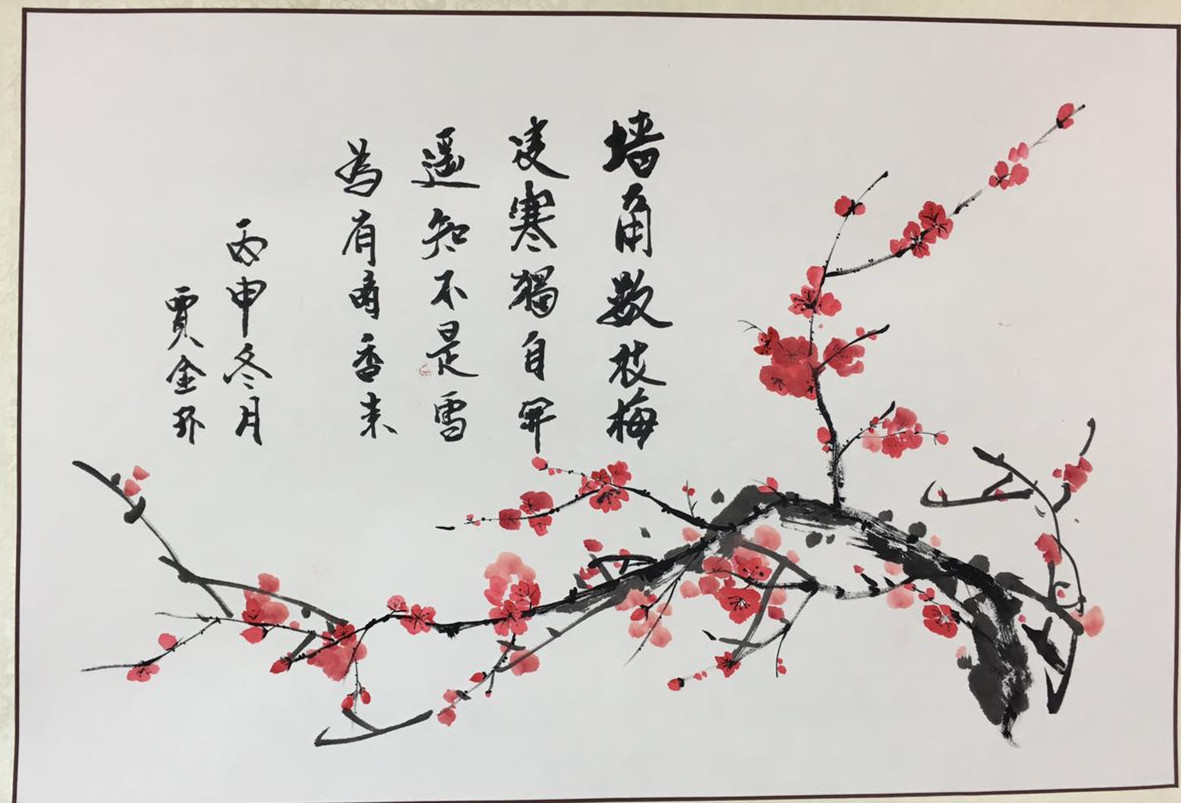 墙角数枝梅
凌寒獨自開
遥知不是雪
為有暗香来
丙申冬月
賈金